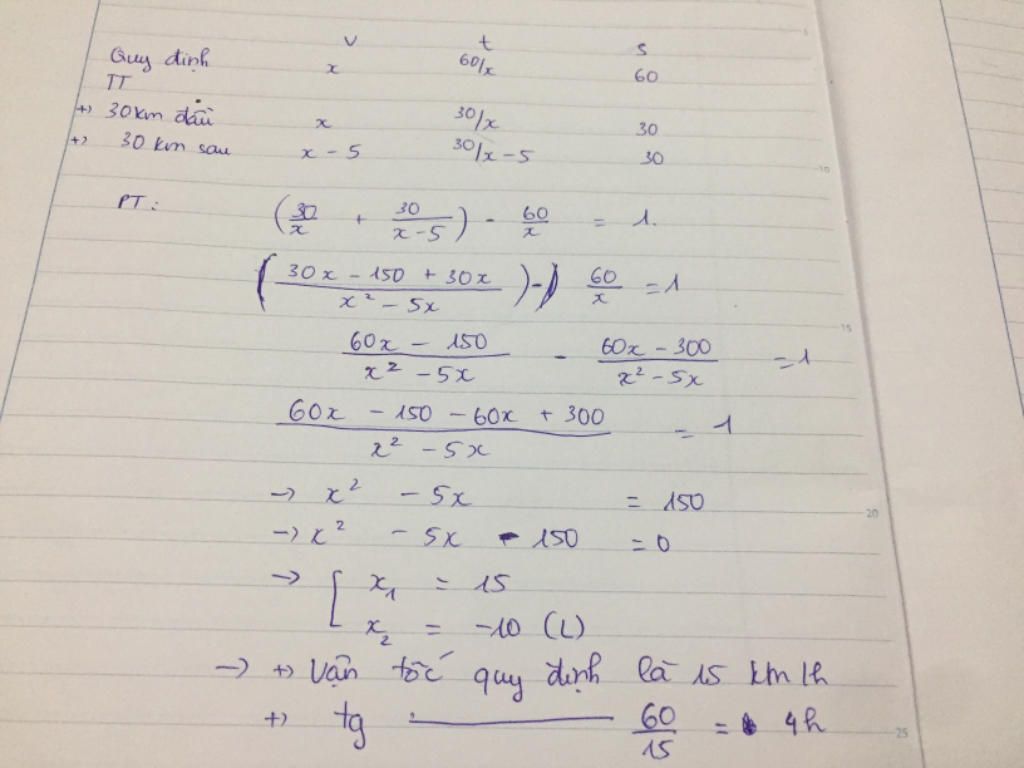 v t s
Quy định x 60/x 60
TT
+) 30km đầu x 30/x 30
+) 30 km sau x - 5 30/x-5 30
PT: (30/x + 30/(x-5)) - 60/x = 1.
((30x - 150 + 30x)/(x² - 5x)) - 60/x = 1
(60x - 150)/(x² - 5x) - (60x - 300)/(x² - 5x) = 1
(60x - 150 - 60x + 300)/(x² - 5x) = 1
→ x² - 5x = 150
→ x² - 5x - 150 = 0
→ [ x₁ = 15
x₂ = -10 (L)
→ +) Vận tốc quy định là 15 km/h
+) tg ——— 60/15 = 4h
5
10
15
20
25